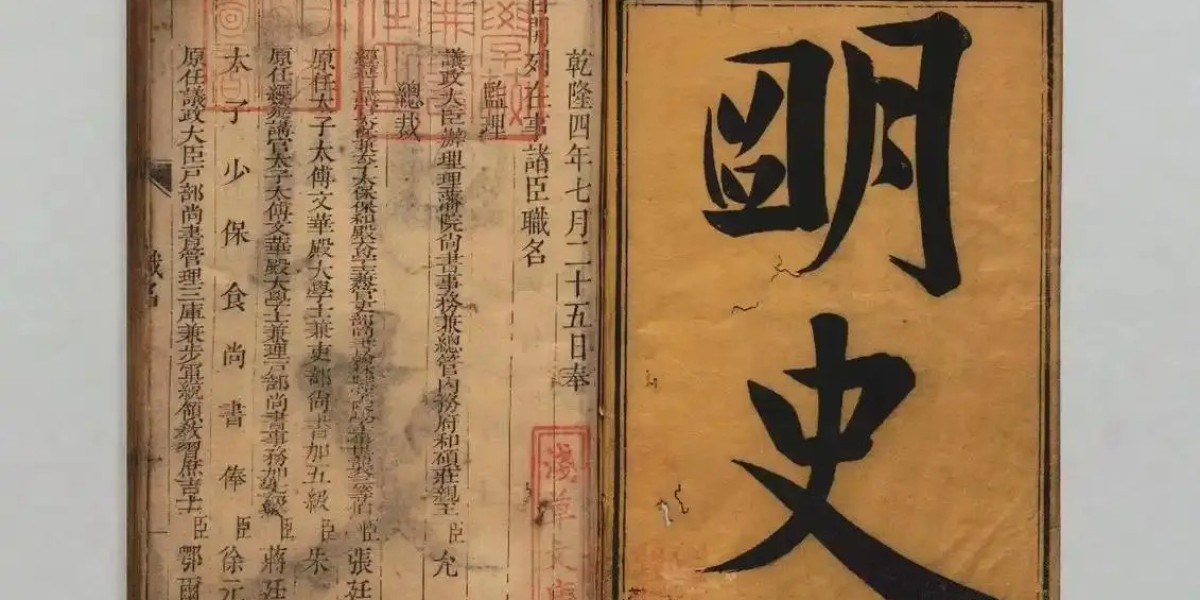 朙史
乾隆四年七月二十五日奉
旨開列在事諸臣職名
監理
議政大臣辦理理藩院尚書事務兼總管內務府和碩莊親王臣允
總裁
太保保和殿大學士兼管吏部尚書臣張廷
原任太子太傅文華殿大學士兼吏部尚書加五級臣朱
原任經筵講官太子太傅文華殿大學士兼理戶部尚書事務加級臣蔣廷
太子少保食尚書俸臣徐元
原任議政大臣戶部尚書管理三庫兼步軍統領教習庶吉士臣鄂爾
職名
淺草文庫